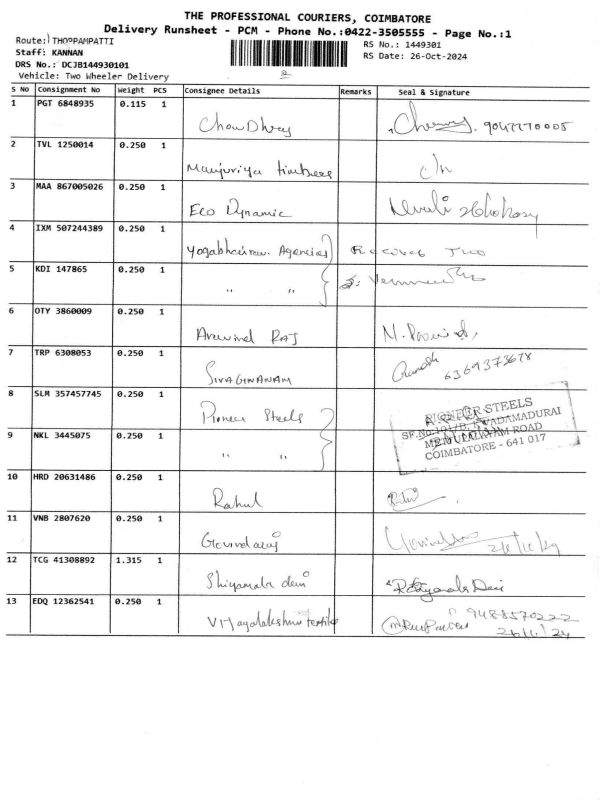 THE PROFESSIONAL COURIERS, COIMBATORE
Delivery Runsheet - PCM - Phone No.:0422-3505555 - Page No.:1
Route: THOPPAMPATTI
RS No.: 1449301
Staff: KANNAN
RS Date: 26-Oct-2024
DRS No.: DCJB144930101
Vehicle: Two Wheeler Delivery
S No Consignment No Weight PCS Consignee Details Remarks Seal & Signature
1 PGT 6848935 0.115 1
ChowDhry 9047770005
2 TVL 1250014 0.250 1
Manjuriya timbers
3 MAA 867005026 0.250 1
Eco Dynamic
4 IXM 507244389 0.250 1
Yogabhairav Agencies Received Two
5 KDI 147865 0.250 1
" "
6 OTY 3860009 0.250 1
Aravind RAJ
7 TRP 6308053 0.250 1
SIVAGNANAM 6369373678
8 SLM 357457745 0.250 1
Pioneer Steels PIONEER STEELS
SF.No.101/B, KAVADAMADURAI
9 NKL 3445075 0.250 1 METTUPALAYAM ROAD
" " COIMBATORE - 641 017
10 HRD 20631486 0.250 1
Rahul
11 VNB 2807620 0.250 1
Govindaraj
12 TCG 41308892 1.315 1
Shiyamala devi
13 EDQ 12362541 0.250 1
Vijayalakshmi textile 9488570222